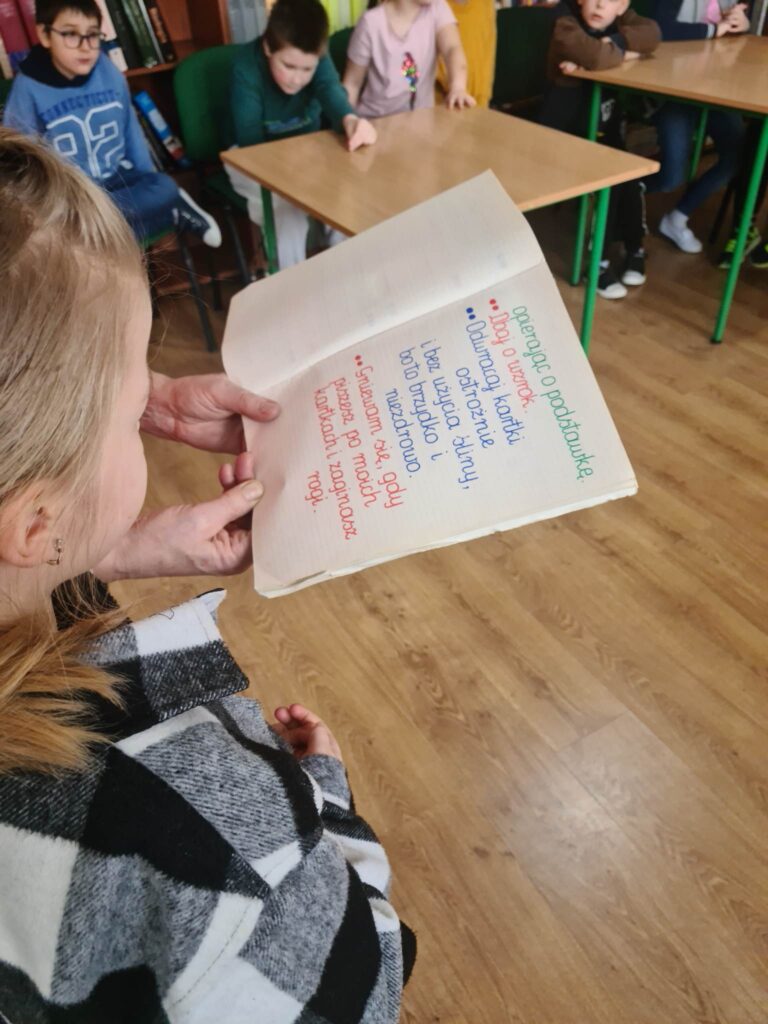 CONNECTICUT
92
opierając o podstawkę.
•• Dbaj o wzrok.
•• Odwracaj kartki
ostrożnie
i bez użycia śliny,
bo to brzydko i
niezdrowo.
•• Gniewam się, gdy
piszesz po moich
kartkach i zaginasz
rogi.